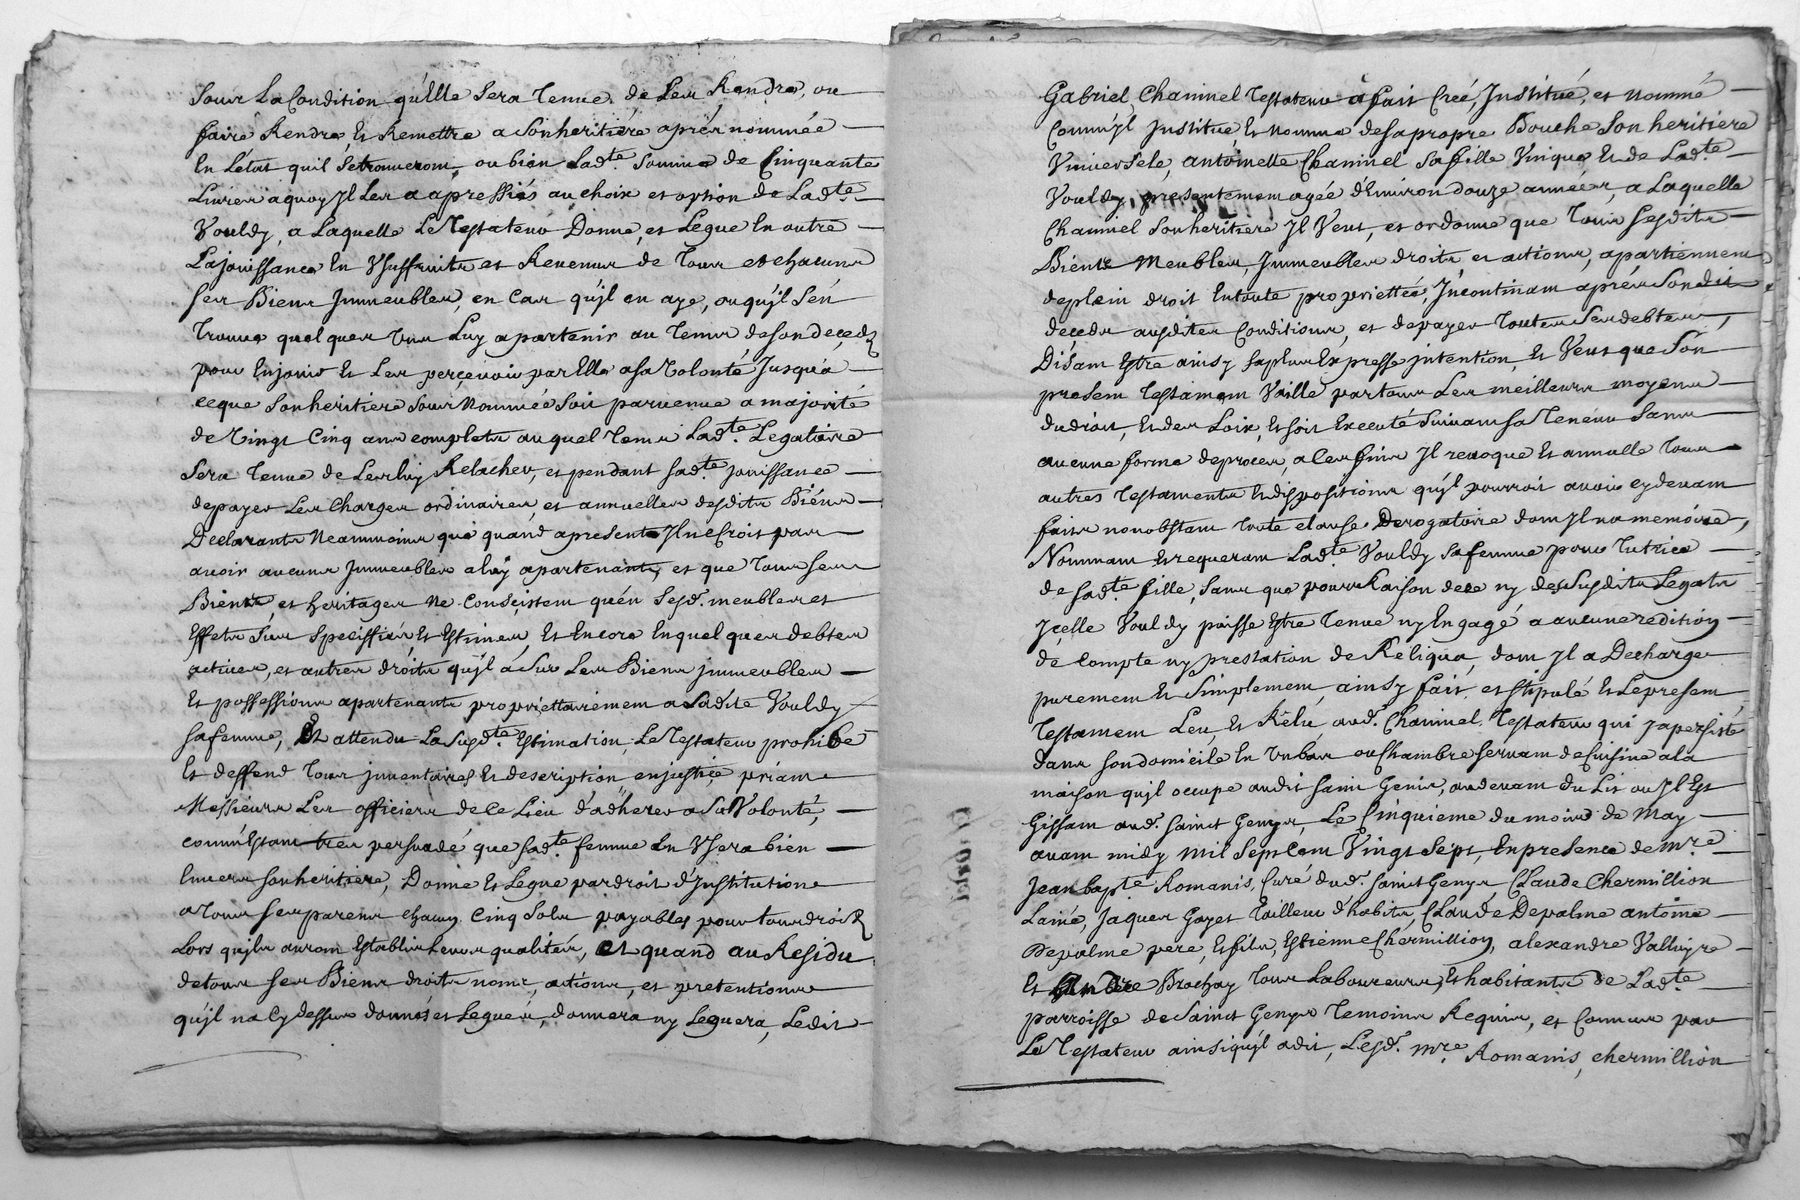 sous La Condition qu'Elle sera Tenue de Les Rendre, ou
faire Rendre Et Remettre a son heritiere après nommée
En L'état quil se trouveront, ou bien Lad.te somme de Cinquante
Livres a quoy Il Les a apressiés au choix et option de Lad.te
Vouldy, a Laquelle Le Testateur Donne, et Legue En outre
La jouissance En Vsuffruits et Revenus de Tous et chacuns
ses Biens Immeubles, en Cas qu'jl en aye, ou qu'jl s'én
Trouve quelques Vns Luy apartenir au Tems de son decedz
pour En jouir Et Les perçevoir par Elle a sa Volonté Jusqu'a
ce que son heritiere sous Nommée soit parvenue a majorité
de Vingt Cinq ans complets au quel Tems Lad.te Legataire
sera Tenue de Les luy Relacher, et pendant sad.te jouissance
de payer Les Charges ordinaires, et annuelles desdits Biens
Declarants Neammoins que quand apresent Il ne Croit pas
avoir aucuns Jmmeubles a luy apartenants, et que Tous ses
Biens, et heritages Ne Conséistent qu'én sesd. meubles et
Effets sus speciffiés Et Estimes, Et Encore En quelques debtes
actives, et autres droits qu'jl a sur Les Biens jmmeubles
Et possessions apartenants proprièttairement a Ladite Vouldy
sa femme, Et attendu La susd.te Estimation, Le Testateur prohibe
Et deffend Tous jnventaires Et description en justiçe priant
Messieurs Les officiers de Ce Lieu d'adherer a sa Volonté,
comm'Estant tres persuadé que sad.te femme En Vsera bien
Envers son heritiere, Donne Et Legue par droit d'Institution
a Tous ses parens chacun Cinq Sols payables pour tous droits
Lors qu'jls auront Establis Leurs qualités, Et quand au Residu
de tous ses Biens droits noms, actions, et pretentions
qu'jl n'a Cy dessus donnés et Legués, donnera ny Leguera, Ledit
Gabriel Channel Testateur a fait Créé, Institué, et Nommé
Comm'jl Institue Et Nomme de sa propre Bouche Son heritiere
Vniversele, antoinette Channel sa fille Vnique Et de Lad.te
Vouldy, presentement agée d'Environ douze années, a Laquelle
Channel son heritiere Il Veut, et ordonne que Tous sesdits
Biens Meubles, Immeubles droits et actions, apartiennent
de plein droit En toute propriettée, Incontinam après son dit
decedz ausdites Conditions, et de payer Toutes ses debtes,
Disam Estre ainsy sa plus Expresse jntention, Et Veut que Són
presem Testamem Vaille par tous Les meilleurs moyens
du droit, Et des Loix, Et soit Executé Suivam sa Teneur sans
aucune forme de procer, a Ces fins Il revoque Et annulle Tous
autres Testaments Et dispositions qu'jl pourroit avoir cy devam
faits nonobstam toute clause Derogatoire dom Il n'a memóire,
Nommam Et requeram Lad.te Vouldy sa femme pour Tutrice
de sad.te fille, sans que pour Raison de Ce ny des susdits Legats
jçelle Vouldy puisse Estre Tenue ny Engagé a aucune redition
de Compte ny prestation de Reliqua, dom Il a Decharge
purement Et simplement, ainsy fait, et stipulé Et Le presem
Testamem Leu, Et Rélu aud. Channel Testateur qui y a persisté
dans son domicile En Vn bas ou Chambre servam de Cuisine a la
maison qu'jl occupe audit saint Genis, au devam du Lit ou Il Est
Gissam aud. sainct Genys, Le Cinquieme du mois de May
avam midy Mil Sept Cent Vingt Sept, En presence de M.re
Jean bapte Romanis, Curé dud. sainct Genys Claude Chermillion
Lainé, Jaques Gayet Tailleur d'habits, Claude Depalme antoine
Depalme pere, Et fils, Estienne Chermillion, alexandre Valluyre
Et André Brochay Tous Laboureurs, Et habitants de Lad.te
parroisse de Sainct Genys Temoins Requis, et Connus par
Le Testateur ainsi qu'jl a dit, Lesd. M.re Romanis, chermillion